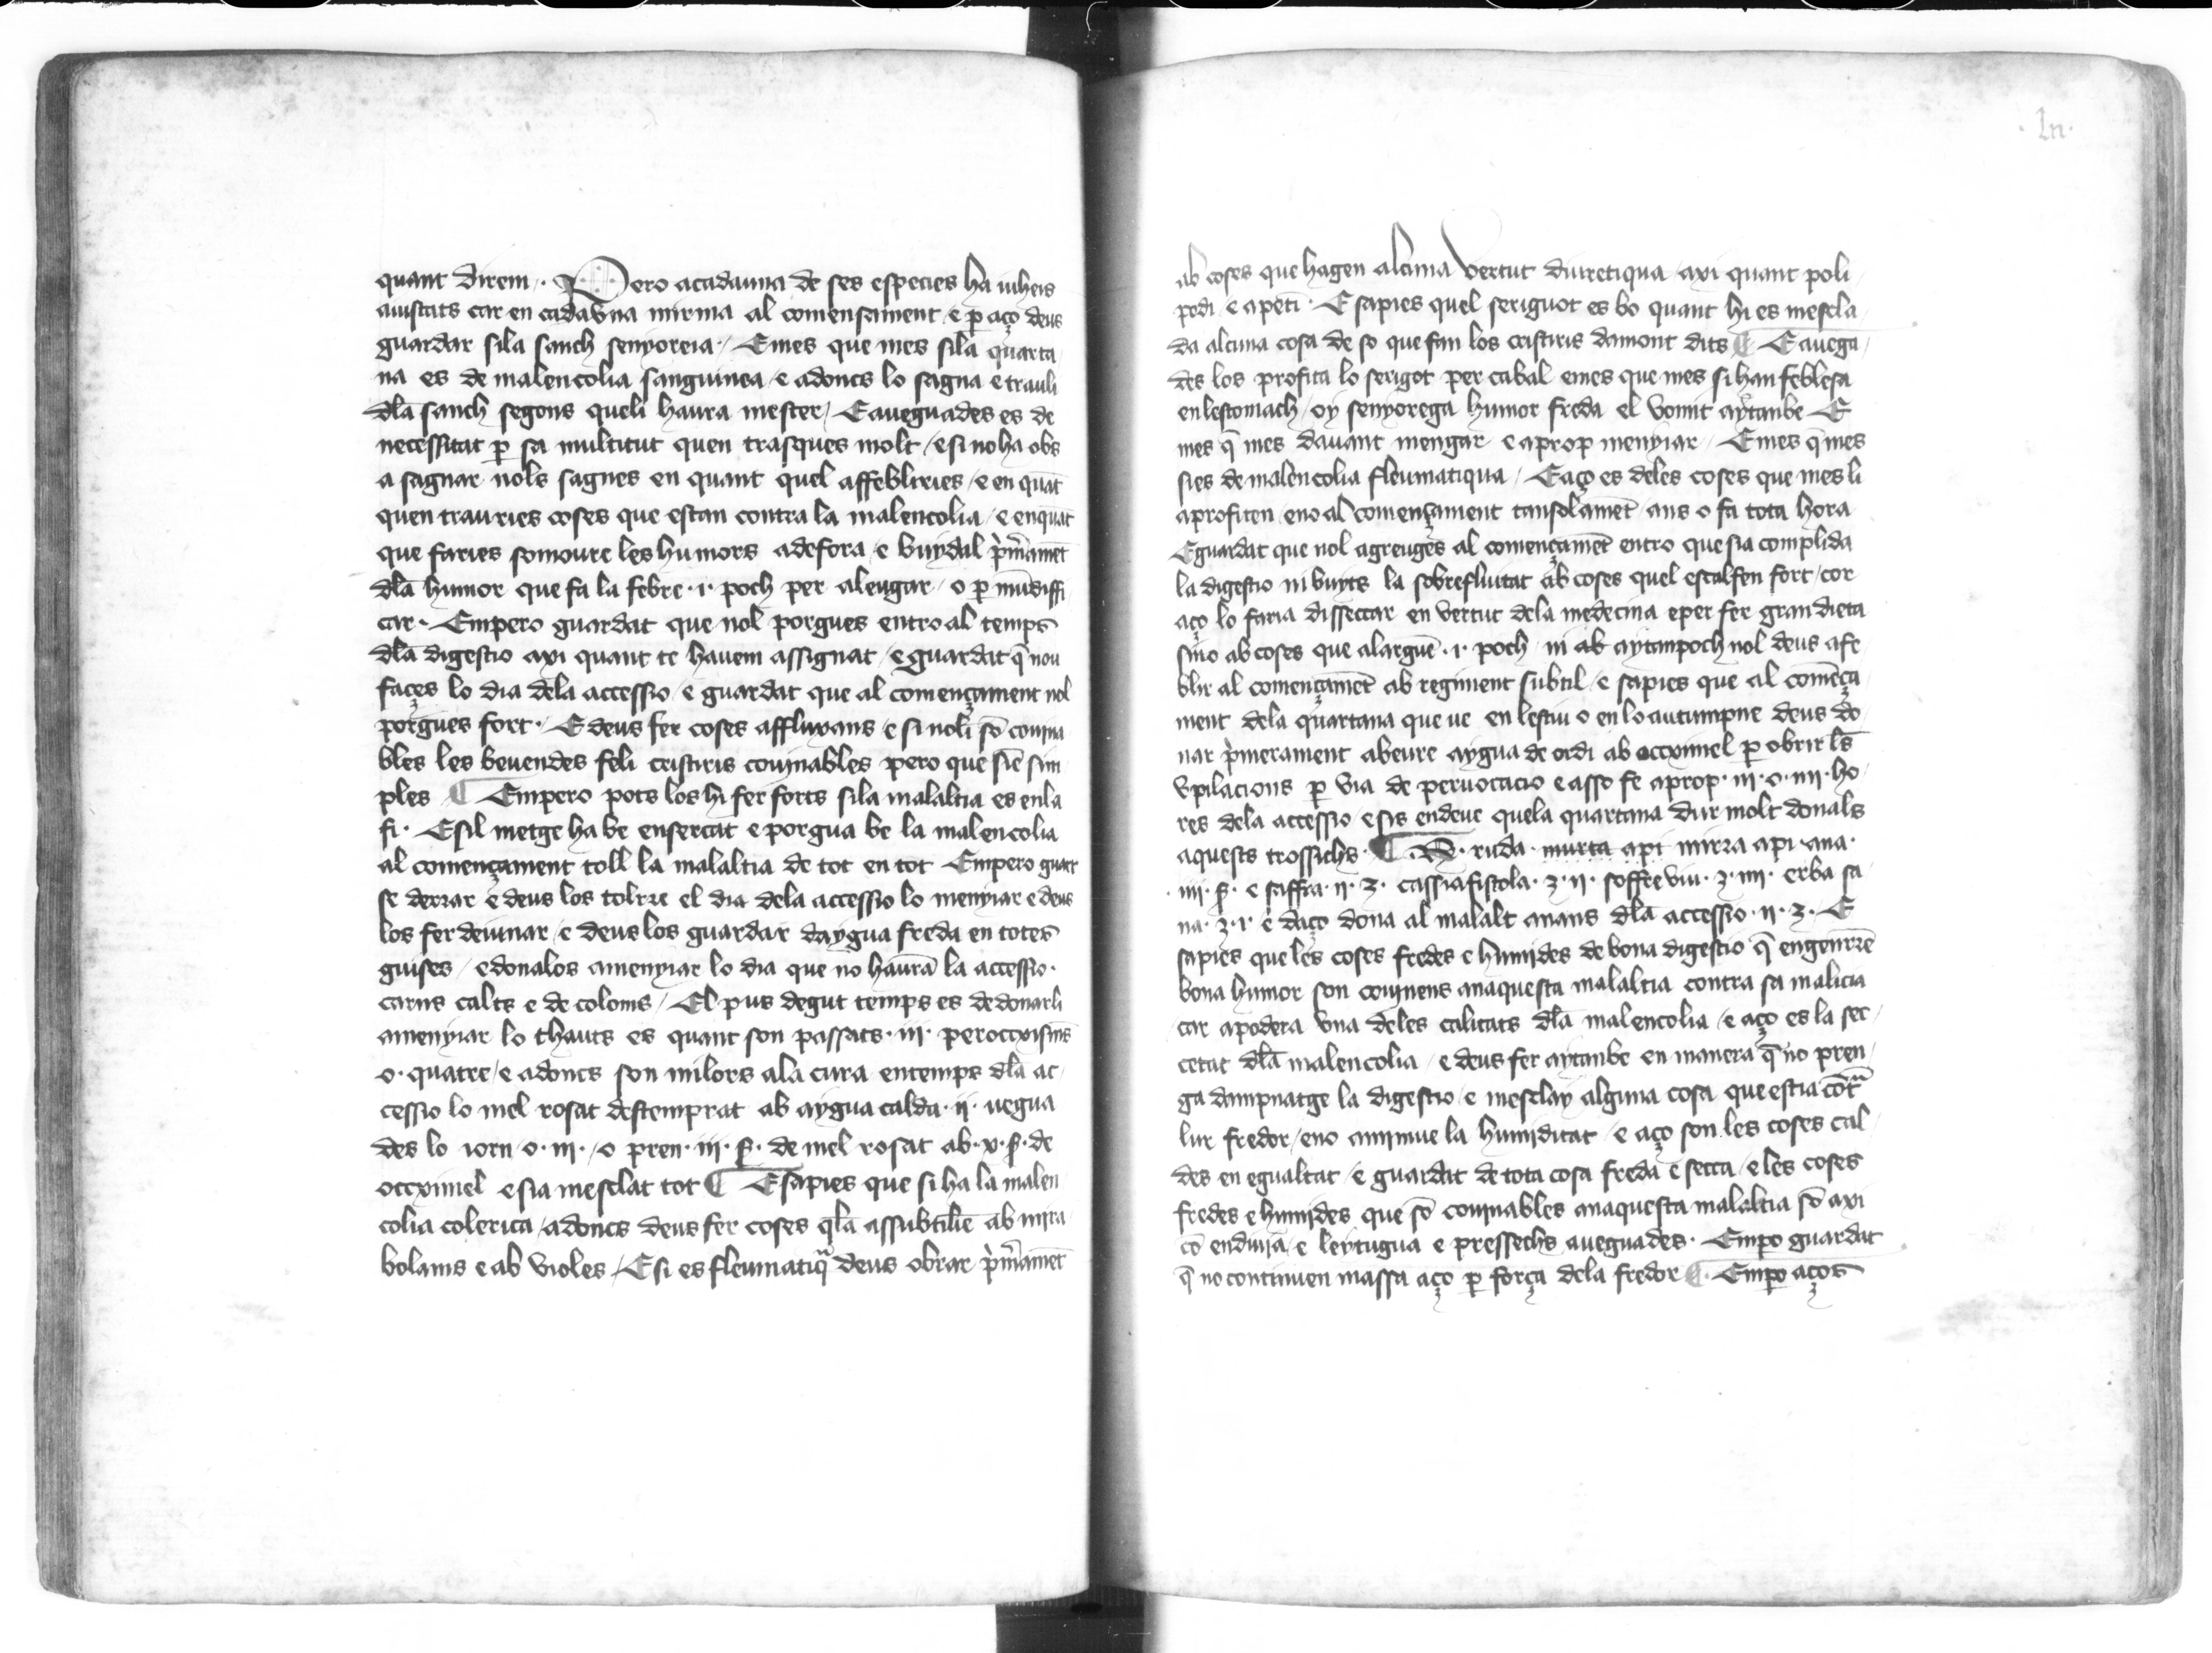 quant direm · Pero acadauna de ses especies ha iuheis
aiustats car en cadavna mirma al comensament / e p̱ aço deus
guardar sila sanch senyoreia / E mes que mes sila quarta
na es de malencolia sanguinea / e adoncs lo sagna e trauli
dl̄a sanch segons queli haura mester / E aueguades es de
necessitat p̱ sa multitut quen trasques molt / e si no ha obs
a sagnar nols sagnes en quant quel affebliries / e en quāt
quen trauries coses que estan contra la malencolia / e enquāt
que faries somoure les humors adefora / e buydal p̓m̄amēt
dl̄a humor que fa la febre ·i· poch per aleugar / o p̱ mūdiffi
car · Empero guardat que nol porgues entro al temps
dl̄a digestio axi quant te hauem assignat / e guardat q̄ nou
façes lo dia dela accessio / e guardat que al començament nol
porgues fort · E deus fer coses affluxans e si noli sō couina
bles les beuendes feli cristiris couinables pero que siē sim
ples ¶ Empero pots los hi fer forts sila malaltia es enla
fi · E sil metge ha be ensercat e porgua be la malencolia
al començament toll la malaltia de tot en tot Empero guart
se derrar e deus los tolrre el dia dela accessio lo menyiar e deus
los fer deiunar / e deus los guardar daygua freda en totes
guises / e donalos amenyiar lo dia que no haurā la accessio ·
carns calts e de coloms / El pus degut temps es de donarli
amenyiar lo thauts es quant son passats ·iii· perocxisms
o · quatre / e adoncs son milors ala cura entemps dl̄a ac
cessio lo mel rosat destemprat ab aygua calda ·ii· uegua
des lo iorn · o · iii · / o pren · iii · ℥ · de mel rosat ab · x · ℥ · de
occximel e sia mesclat tot ¶ E sapies que si ha la malen
colia colerica / adoncs deus fer coses ql̄a assubtiliē ab mira
bolans e ab violes / E si es fleumatiqᵃ deus obrar p̓m̄amēt

· ln ·
ab coses que hagen alcuna vertut diuretiqua axi quant poli
podi / e apeti · E sapies quel seriguot es bo quant hi es mescla
da alcuna cosa de so que fan los cristiris damont dits ¶ E auega
des los profita lo serigot per cabal emes que mes si han feblesa
en lestomach / oy senyorega humor freda el vomit aytanbe E
mes q̄ mes dauant mengar e aprop menyiar / E mes q̄ mes
sies de malencolia fleumatiqua / E aço es deles coses que mes li
aprofiten / eno al començament tansolamēt ans o fa tota hora
E guardat que nol agreuges al començamēt entro que sia complida
la digestio ni buyts la sobrefluitat ab coses quel escalfen fort / cor
aço lo faria disseccar en vertut dela medecina e per fer gran dieta
sino ab coses que alarguē · i · poch / ni ab aytanpoch nol deus afe
blir al començamēt ab regiment subtil / e sapies que al comēça
ment dela quartana que ue en lestiu o en lo autumpne deus do
nar p̓merament abeure aygua de ordi ab occximel p̱ obrir ls̄
opilacions p̱ via de peruoctacio e asso fe aprop · iii · o · iiii · ho
res dela accessio e sis endeue quela quartana dur molt donals
aquests trossichs · ¶ ℞ · ruda · murta api mirra api ana ·
· iiii · ℥ · e saffra · ii · ʒ · cassiafistola · ʒ · ii · soffre viu · ʒ · iiii · erba sa
na · ʒ · i · e daço dona al malalt anans dl̄a accessio · ii · ʒ · E
sapies que les coses fredes e humides de bona digestio q̄ engenrrē
bona humor son couinens anaquesta malaltia contra sa malicia
car apodera vna deles calitats dl̄a malencolia / e aço es la sec
cetat dl̄a malencolia / e deus fer aytanbe en manera q̄ no pren
ga dampnatge la digestio / e mesclay alguna cosa que estia cōtᵃ
lur fredor / eno aminue la humiditat / e aço son les coses cal
des en egualtat / e guardat de tota cosa freda e secca / e les coses
fredes e humides que sō couinables anaquesta malaltia sō axi
cō enduiia / e leytugua e pressechs aueguades · Emp̱o guardat
q̄ no continuen massa aço p̱ força dela fredor ¶ · Emp̱o aços